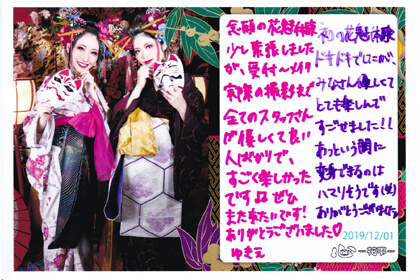 念願の花魁体験
少し緊張しました
が、受付〜メイク
実際の撮影まで
全てのスタッフさん
が優しくて良い
人ばかりで、
すごく楽しかった
です♫ ぜひ
また来たいです!
ありがとうございました♡
ゆきえ
初の花魁体験
ドキドキでしたが、
みなさん優しくて
とても楽しんで
すごせました!!
あっという間に
変身できるのは
ハマりそうです(笑)
ありがとうございました
2019/12/01
心